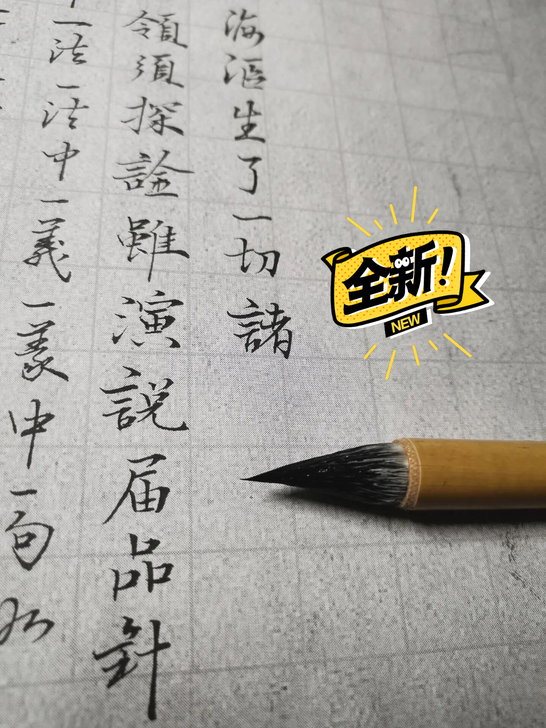 海漚生了一切諸
領須探詮雖演説届品針
一法一法中一義一義中一句
全新!
NEW